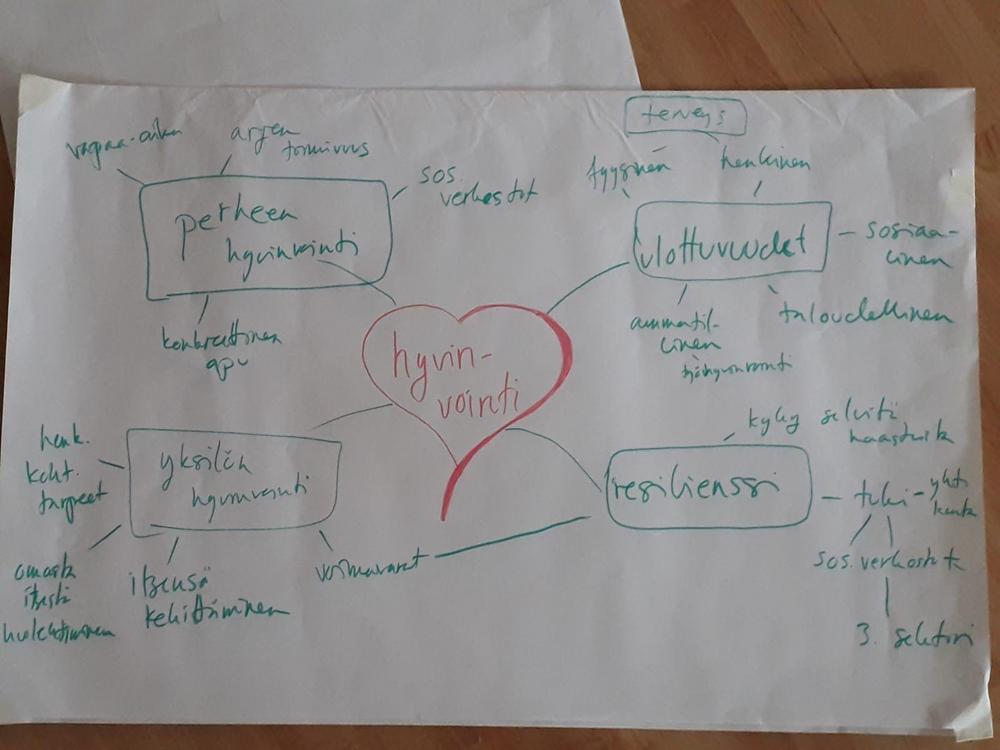 terveys
vapaa-aika
arjen
toimivuus
sos.
verkostot
perheen
hyvinvointi
konkreettinen
apu
fyysinen
henkinen
ulottuvuudet
- sosiaa-
linen
taloudellinen
ammatil-
linen
työhyvinvointi
hyvin-
vointi
henk.
koht.
tarpeet
yksilön
hyvinvointi
omasta
itsestä
huolehtiminen
itsensä
kehittäminen
voimavarat
kyky selvitä
haasteista
resilienssi
- tuki -
sos. verkostot
3. sektori